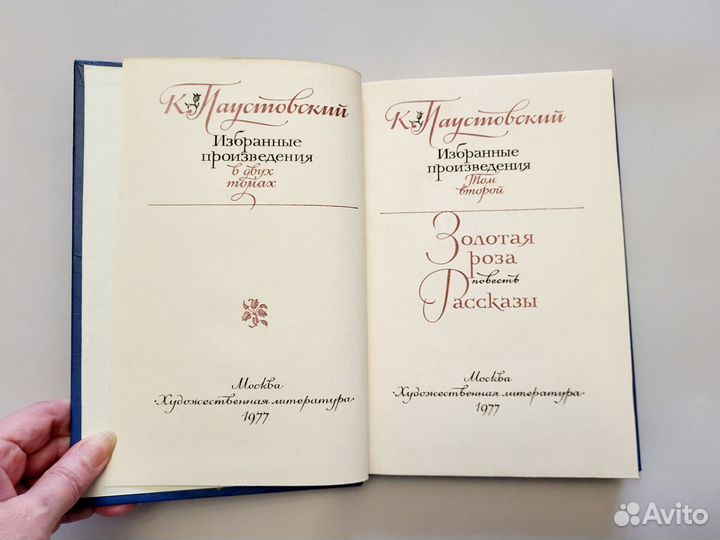 К. Паустовский
Избранные
произведения
в двух
томах
Москва
·Художественная литература·
1977
К. Паустовский
Избранные
произведения
Том
второй
Золотая
роза
повесть
Рассказы
Москва
·Художественная литература·
1977
Avito